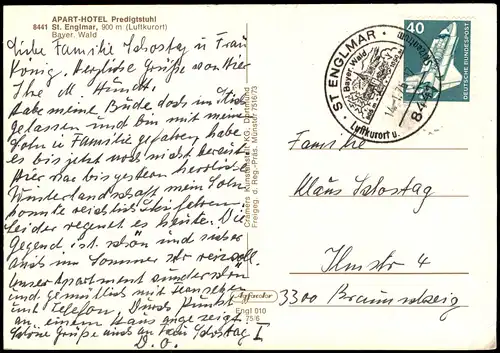 APART-HOTEL Predigtstuhl
8441 St. Englmar, 900 m (Luftkurort)
Bayer. Wald
Liebe Familie Schostag u Frau
König. Herzliche Grüße von hier
Ihre M.
Habe meine Bude doch im Stich
gelassen und bin mit meinem
Sohn u Familie gefahren, habe
es bis jetzt noch nicht bereut.
Hier war bis gestern herrliche
Winterlandschaft mein Sohn
konnte reichlich
leider regnet es heute. Die
Gegend ist schön und sicher
auch im Sommer sehr reizvoll.
Unser Apartment wunderschön
und gemütlich mit Fernsehen
und Telefon. Durch Punkt
an einem Haus angezeigt.
Schöne Grüße auch an Frau Schostag I
D. O.
Cramers Kunstanstalt KG, Dortmund
Freigeg. d. Reg.-Präs. Münster 7516/73
Agfacolor
Engl 010
75/6
ST ENGLMAR
Bayer. Wald
Luftkurort u.
844
40
DEUTSCHE BUNDESPOST
Familie
Klaus Schostag
Ilmstr 4
3300 Braunschweig